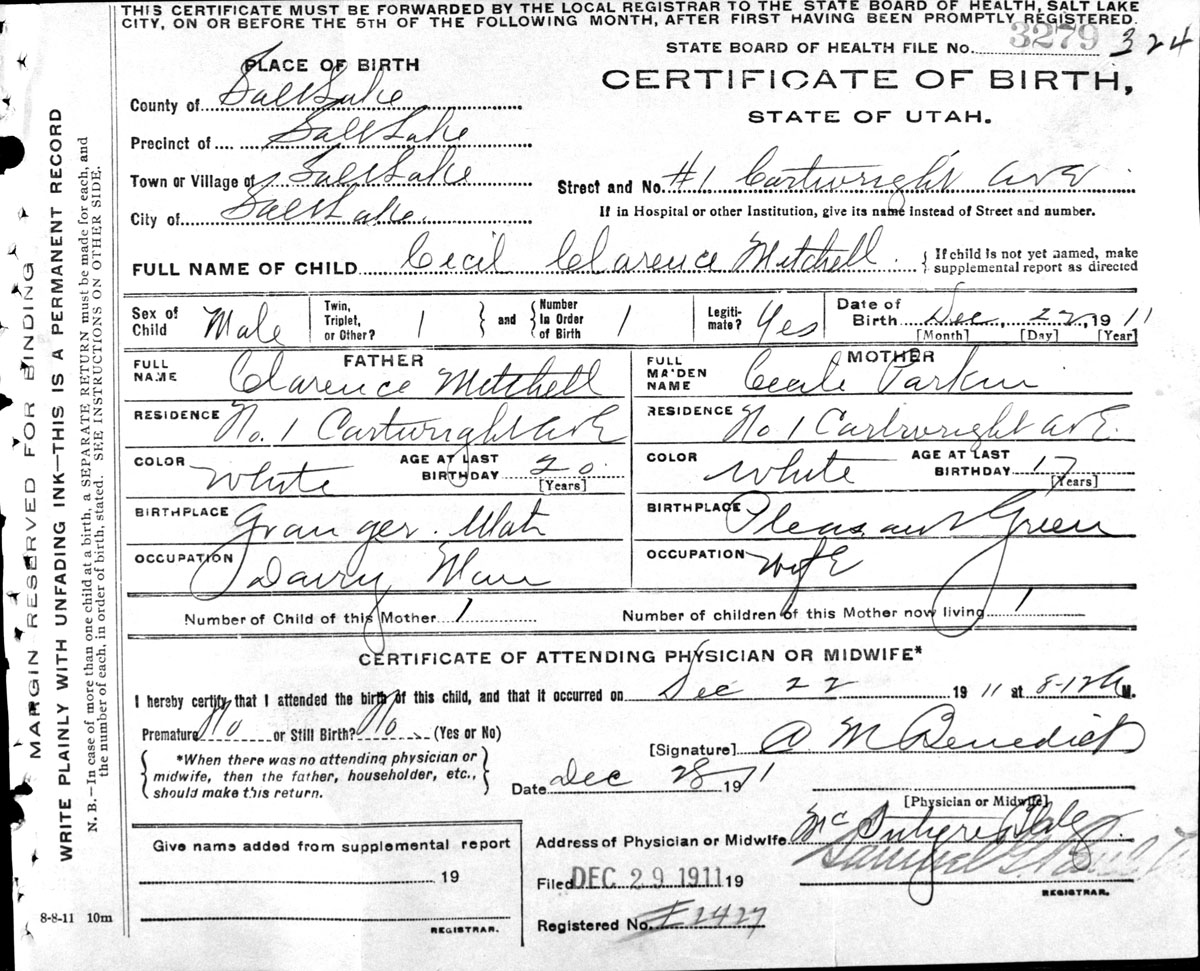 THIS CERTIFICATE MUST BE FORWARDED BY THE LOCAL REGISTRAR TO THE STATE BOARD OF HEALTH, SALT LAKE
CITY, ON OR BEFORE THE 5TH OF THE FOLLOWING MONTH, AFTER FIRST HAVING BEEN PROMPTLY REGISTERED.
STATE BOARD OF HEALTH FILE No. 3279 324
PLACE OF BIRTH
CERTIFICATE OF BIRTH,
STATE OF UTAH.
County of Salt Lake
Precinct of Salt Lake
Town or Village of Salt Lake
Street and No. #1 Cartwright AvE
City of Salt Lake
If in Hospital or other Institution, give its name instead of Street and number.
FULL NAME OF CHILD Cecil Clarence Mitchell
If child is not yet named, make
supplemental report as directed
Sex of Child Male
Twin, Triplet, or Other? 1
and Number In Order of Birth 1
Legiti-mate? Yes
Date of Birth Dec, 22, 1911
[Month] [Day] [Year]
FATHER
FULL NAME Clarence Mitchell
RESIDENCE No. 1 Cartwright AvE
COLOR White AGE AT LAST BIRTHDAY 20.
[Years]
BIRTHPLACE Granger. Utah
OCCUPATION Dairy Man
MOTHER
FULL MAIDEN NAME Cecile Parkin
RESIDENCE No 1 Cartwright AvE.
COLOR White AGE AT LAST BIRTHDAY 17
[Years]
BIRTHPLACE Pleasant Green
OCCUPATION WifE
Number of Child of this Mother 1 Number of children of this Mother now living 1
CERTIFICATE OF ATTENDING PHYSICIAN OR MIDWIFE*
I hereby certify that I attended the birth of this child, and that it occurred on Dec 22 1911 at 8-12 A M.
Premature No or Still Birth? No (Yes or No)
*When there was no attending physician or
midwife, then the father, householder, etc.,
should make this return.
[Signature] A M Benedict
Date Dec 28 1911
[Physician or Midwife]
Address of Physician or Midwife McIntyre Bldg.
Give name added from supplemental report
19
REGISTRAR.
Filed DEC 29 1911 19
Samuel G. Paul
REGISTRAR.
Registered No. E2427
8-8-11 10m
MARGIN RESERVED FOR BINDING
WRITE PLAINLY WITH UNFADING INK—THIS IS A PERMANENT RECORD
N. B.—In case of more than one child at a birth, a SEPARATE RETURN must be made for each, and
the number of each, in order of birth, stated. SEE INSTRUCTIONS ON OTHER SIDE.